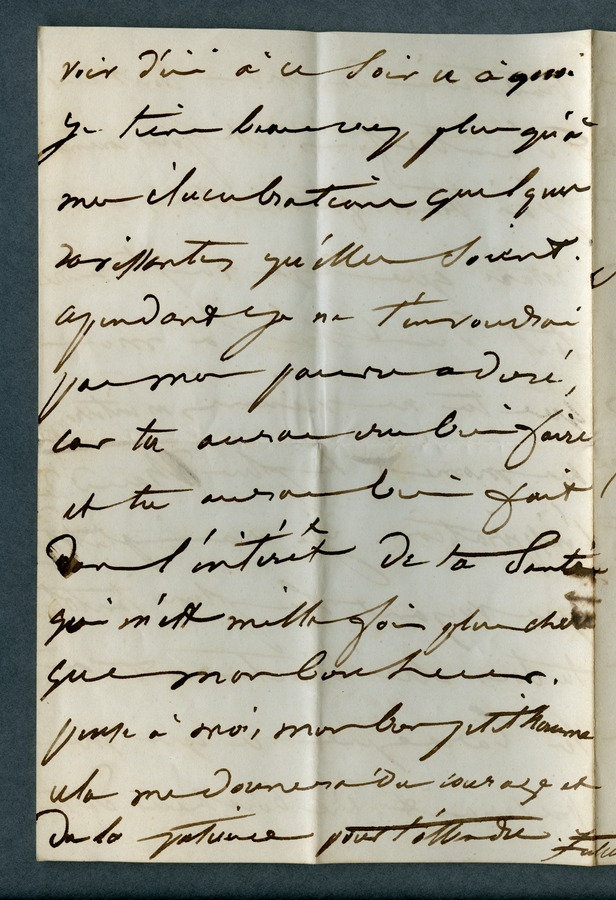 voir d'ici à ce soir ce à quoi
je tiens beaucoup plus qu'à
mes élucubrations quelques
ravissantes qu'elles soient.
cependant je ne t'en voudrai
pas mon pauvre adoré,
car tu auras cru bien faire
et tu auras bien fait
dans l'intérêt de ta santé
qui m'est mille fois plus chère
que mon bonheur.
pense à moi, mon bon petit homme
cela me donnera du courage et
de la patience pour t'attendre.